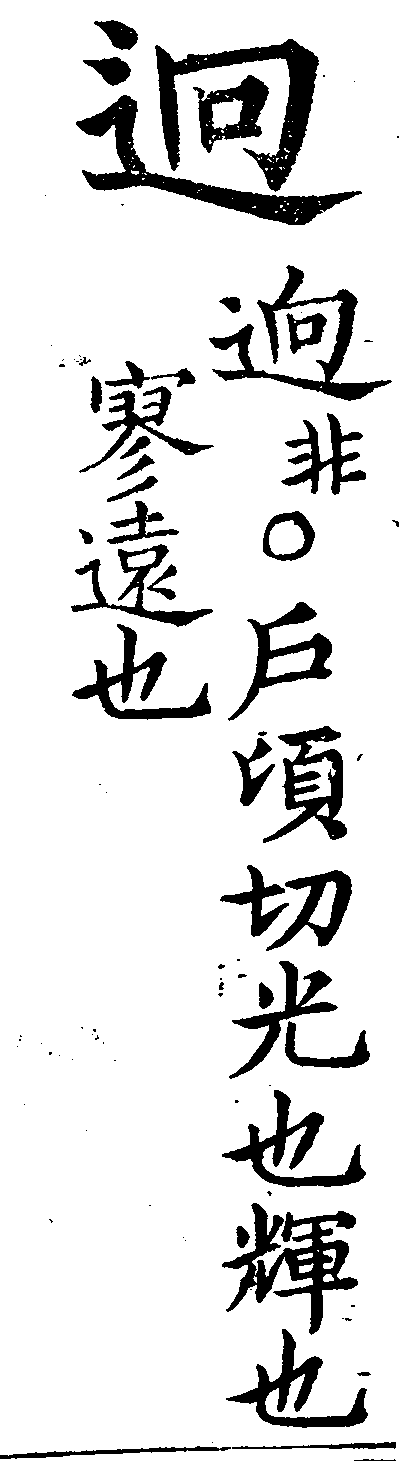 迥
逈非○戶頃切光也輝也
寥遠也